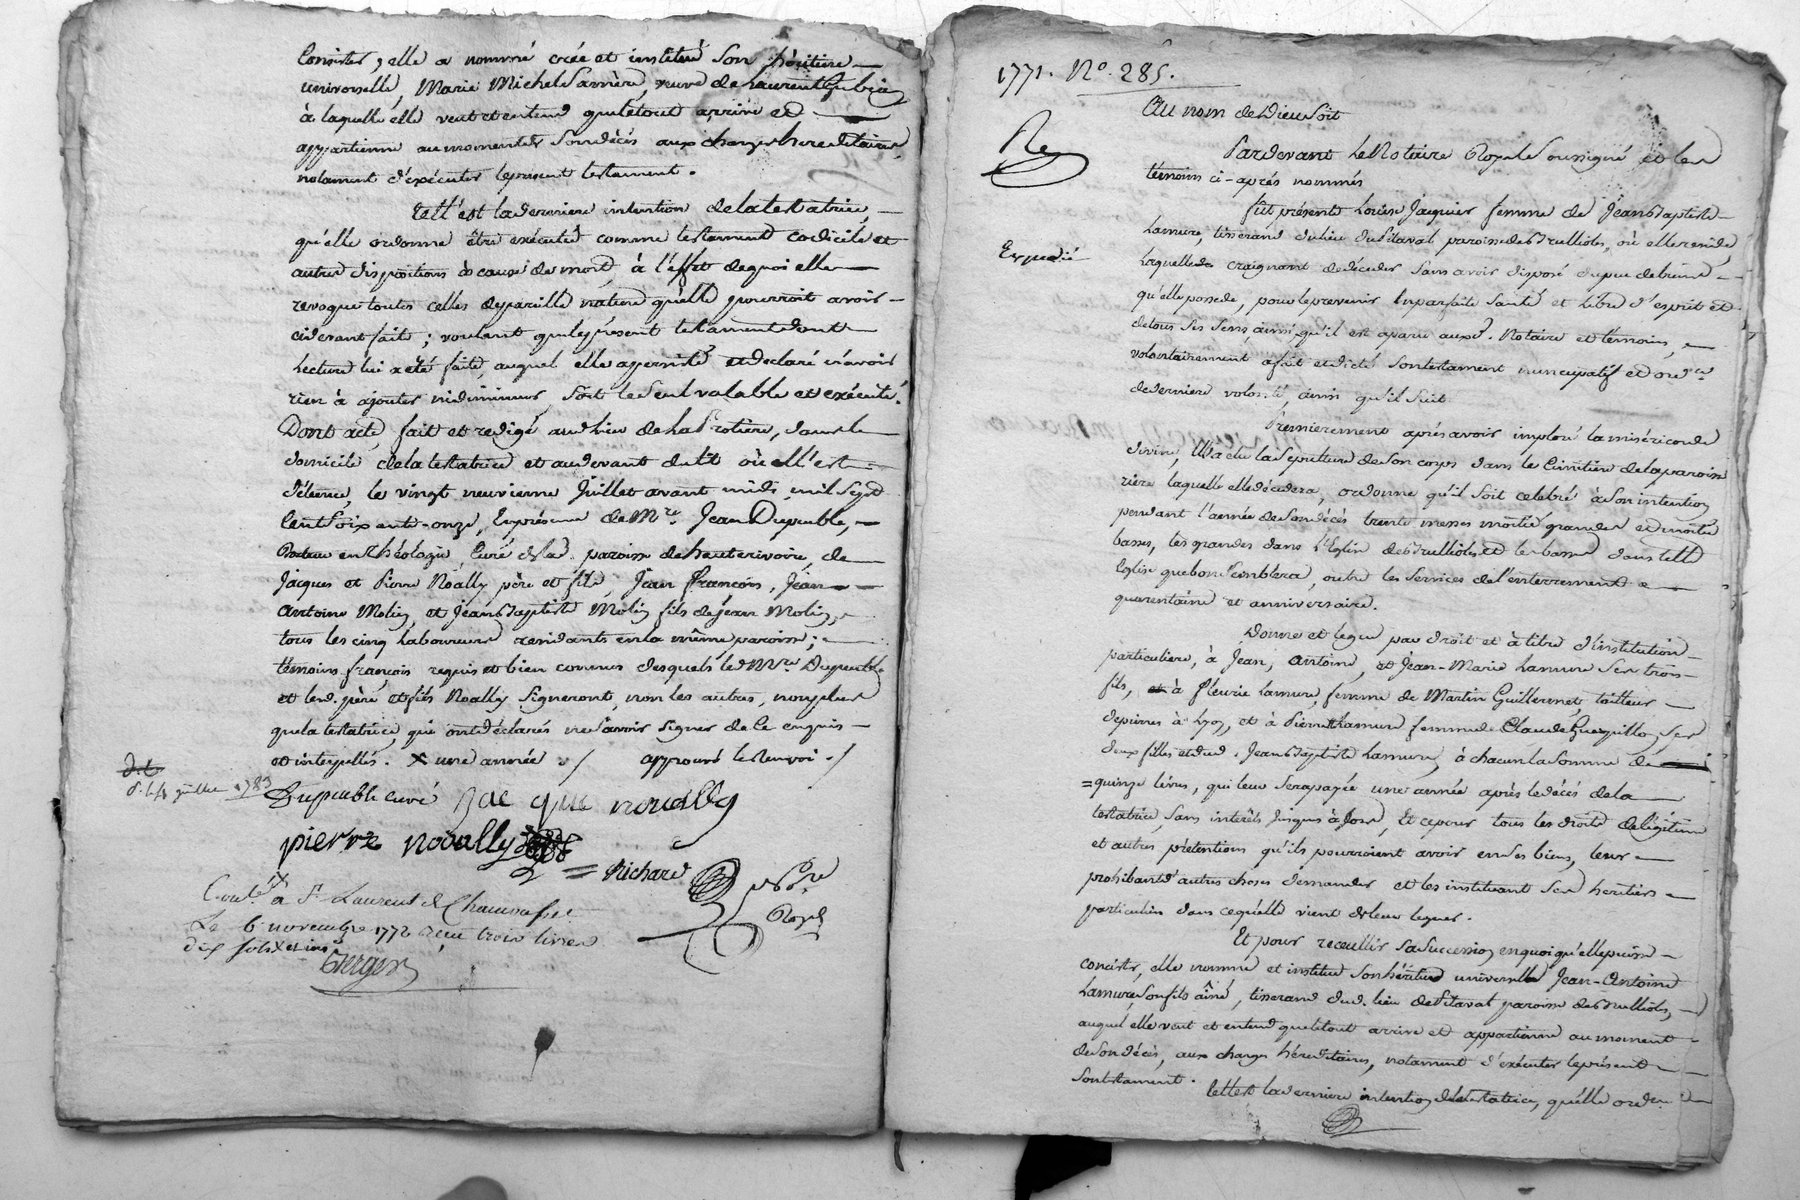 Consister, elle a nommé créé et institué son héritiere
universelle, Marie Michel sa mère, veuve de Laurent
à laquelle elle veut et entend que le tout arrive et
appartienne au moment de son décès aux charges hereditaires,
notament d'exécuter le present testament.
Telle est la derniere intention de la testatrice,
qu'elle ordonne être exécuté comme testament codicile et
autres dispositions à cause de mort, à l'effet de quoi elle
revoque toutes celles de pareille nature qu'elle pourroit avoir
cidevant faite; voulant que le présent testament dont
Lecture lui a été faite, auquel elle a persisté et declaré n'avoir
rien à ajouter ni diminuer, soit le seul valable et exécuté.
Dont acte, fait et redigé au lieu de la Protiere, dans le
domicile de la testatrice et au devant du lit où elle est
détenue, le vingt neuvieme Juillet avant midi, mil sept
cent soixante-onze, En présence de Mre. Jean Dupeuble,
Docteur en Théologie, Curé de lad. paroisse de hauterivoire, de
Jacques et Pierre Noally père et fils, Jean François, Jean
Antoine Molin, et Jean Baptiste Molin fils de Jean Molin,
tous les cinq Laboureurs residants en la même paroisse;
témoins françois requis et bien connus desquels led. Mre. Dupeuble
et lesd. père et fils Noally signeront, non les autres, non plus
que la testatrice, qui ont déclarés ne savoir signer de ce enquis
et interpellés. X une année ./ approuvé le renvoi ./
d. l.
d. 4 juillet 1783
Dupeuble curé Jacque novally
pierre novally
Richard
Nore
Royal
Contlé à St Laurent de Chamousset
Le 6 novembre 1772 reçu trois livres
dix sols
Berger
1771. No. 285.
Au nom de Dieu soit
Re
Pardevant Le Notaire Royal soussigné et les
témoins ci-après nommés
fût présente Louise Jaquier femme de Jean Baptiste
Expedié
Lamure, tisserand du lieu du Pitaval paroisse des Brulliolles, où elle reside,
Laquelle craignant de décéder sans avoir disposé du peu de biens
qu'elle possede, pour le prevenir En parfaite santé et libre d'esprit et
de tous ses sens, ainsi qu'il est aparu auxd. Notaire et témoins,
volontairement a fait et dicté son testament nuncupatif et ordce
de derniere volonté, ainsi qu'il suit.
Premierement après avoir imploré la miséricorde
divine, Elle a élu la sepulture de son corps dans le Cimetiere de la paroisse
riere laquelle elle décédera, ordonne qu'il soit celebré à son intention
pendant l'année de son décès trente messes moitié grandes et moitié
basses, les grandes dans l'Eglise des Brulliolles et les basses dans telle
Eglise que bon semblera, outre les services de l'enterrement
quarentaine et anniversaire.
Donne et legue par droit et à titre d'institution
particuliere, à Jean, Antoine, et Jean-Marie Lamure ses trois
fils, et à Fleurie Lamure, femme de Martin Guillermet, tailleur
de pierres à Lyon, et à Pierrette Lamure femme de Claude ses
deux filles et dud. Jean Baptiste Lamure, à chacun la somme de
quinze livres, qui leur sera payée une année après le décès de la
testatrice, sans intérêts jusques à ce jour, Et ce pour tous les droits de légitime
et autres prétentions qu'ils pourroient avoir en ses biens, leur
prohibant d'autres choses demander et les instituant ses heritiers
particuliers dans ce qu'elle vient de leur leguer.
Et pour recueillir sa succession en quoi qu'elle puisse
concister, elle nomme et institue son héritier universelle Jean-Antoine
Lamure, son fils aîné, tisserand dud. lieu de Pitaval paroisse des Brulliolles,
auquel elle veut et entend que le tout arrive et appartienne au moment
de son décès, aux charges héréditaires, notament d'exécuter le présent
son testament.
Telle est la derniere intention de la testatrice, qu'elle ordonne